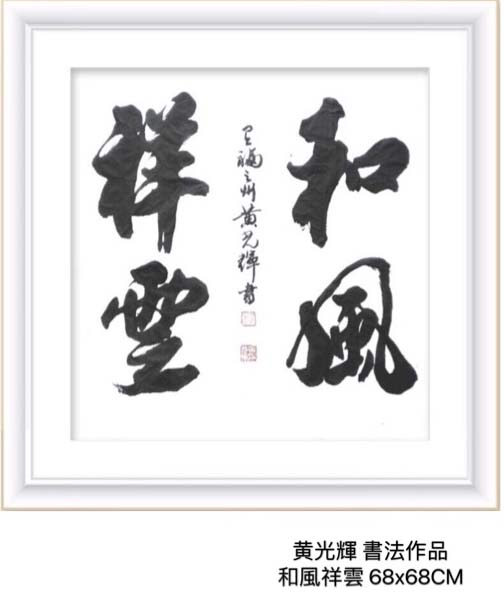 和風
祥雲
黄光輝書
黄光輝 書法作品
和風祥雲 68x68CM